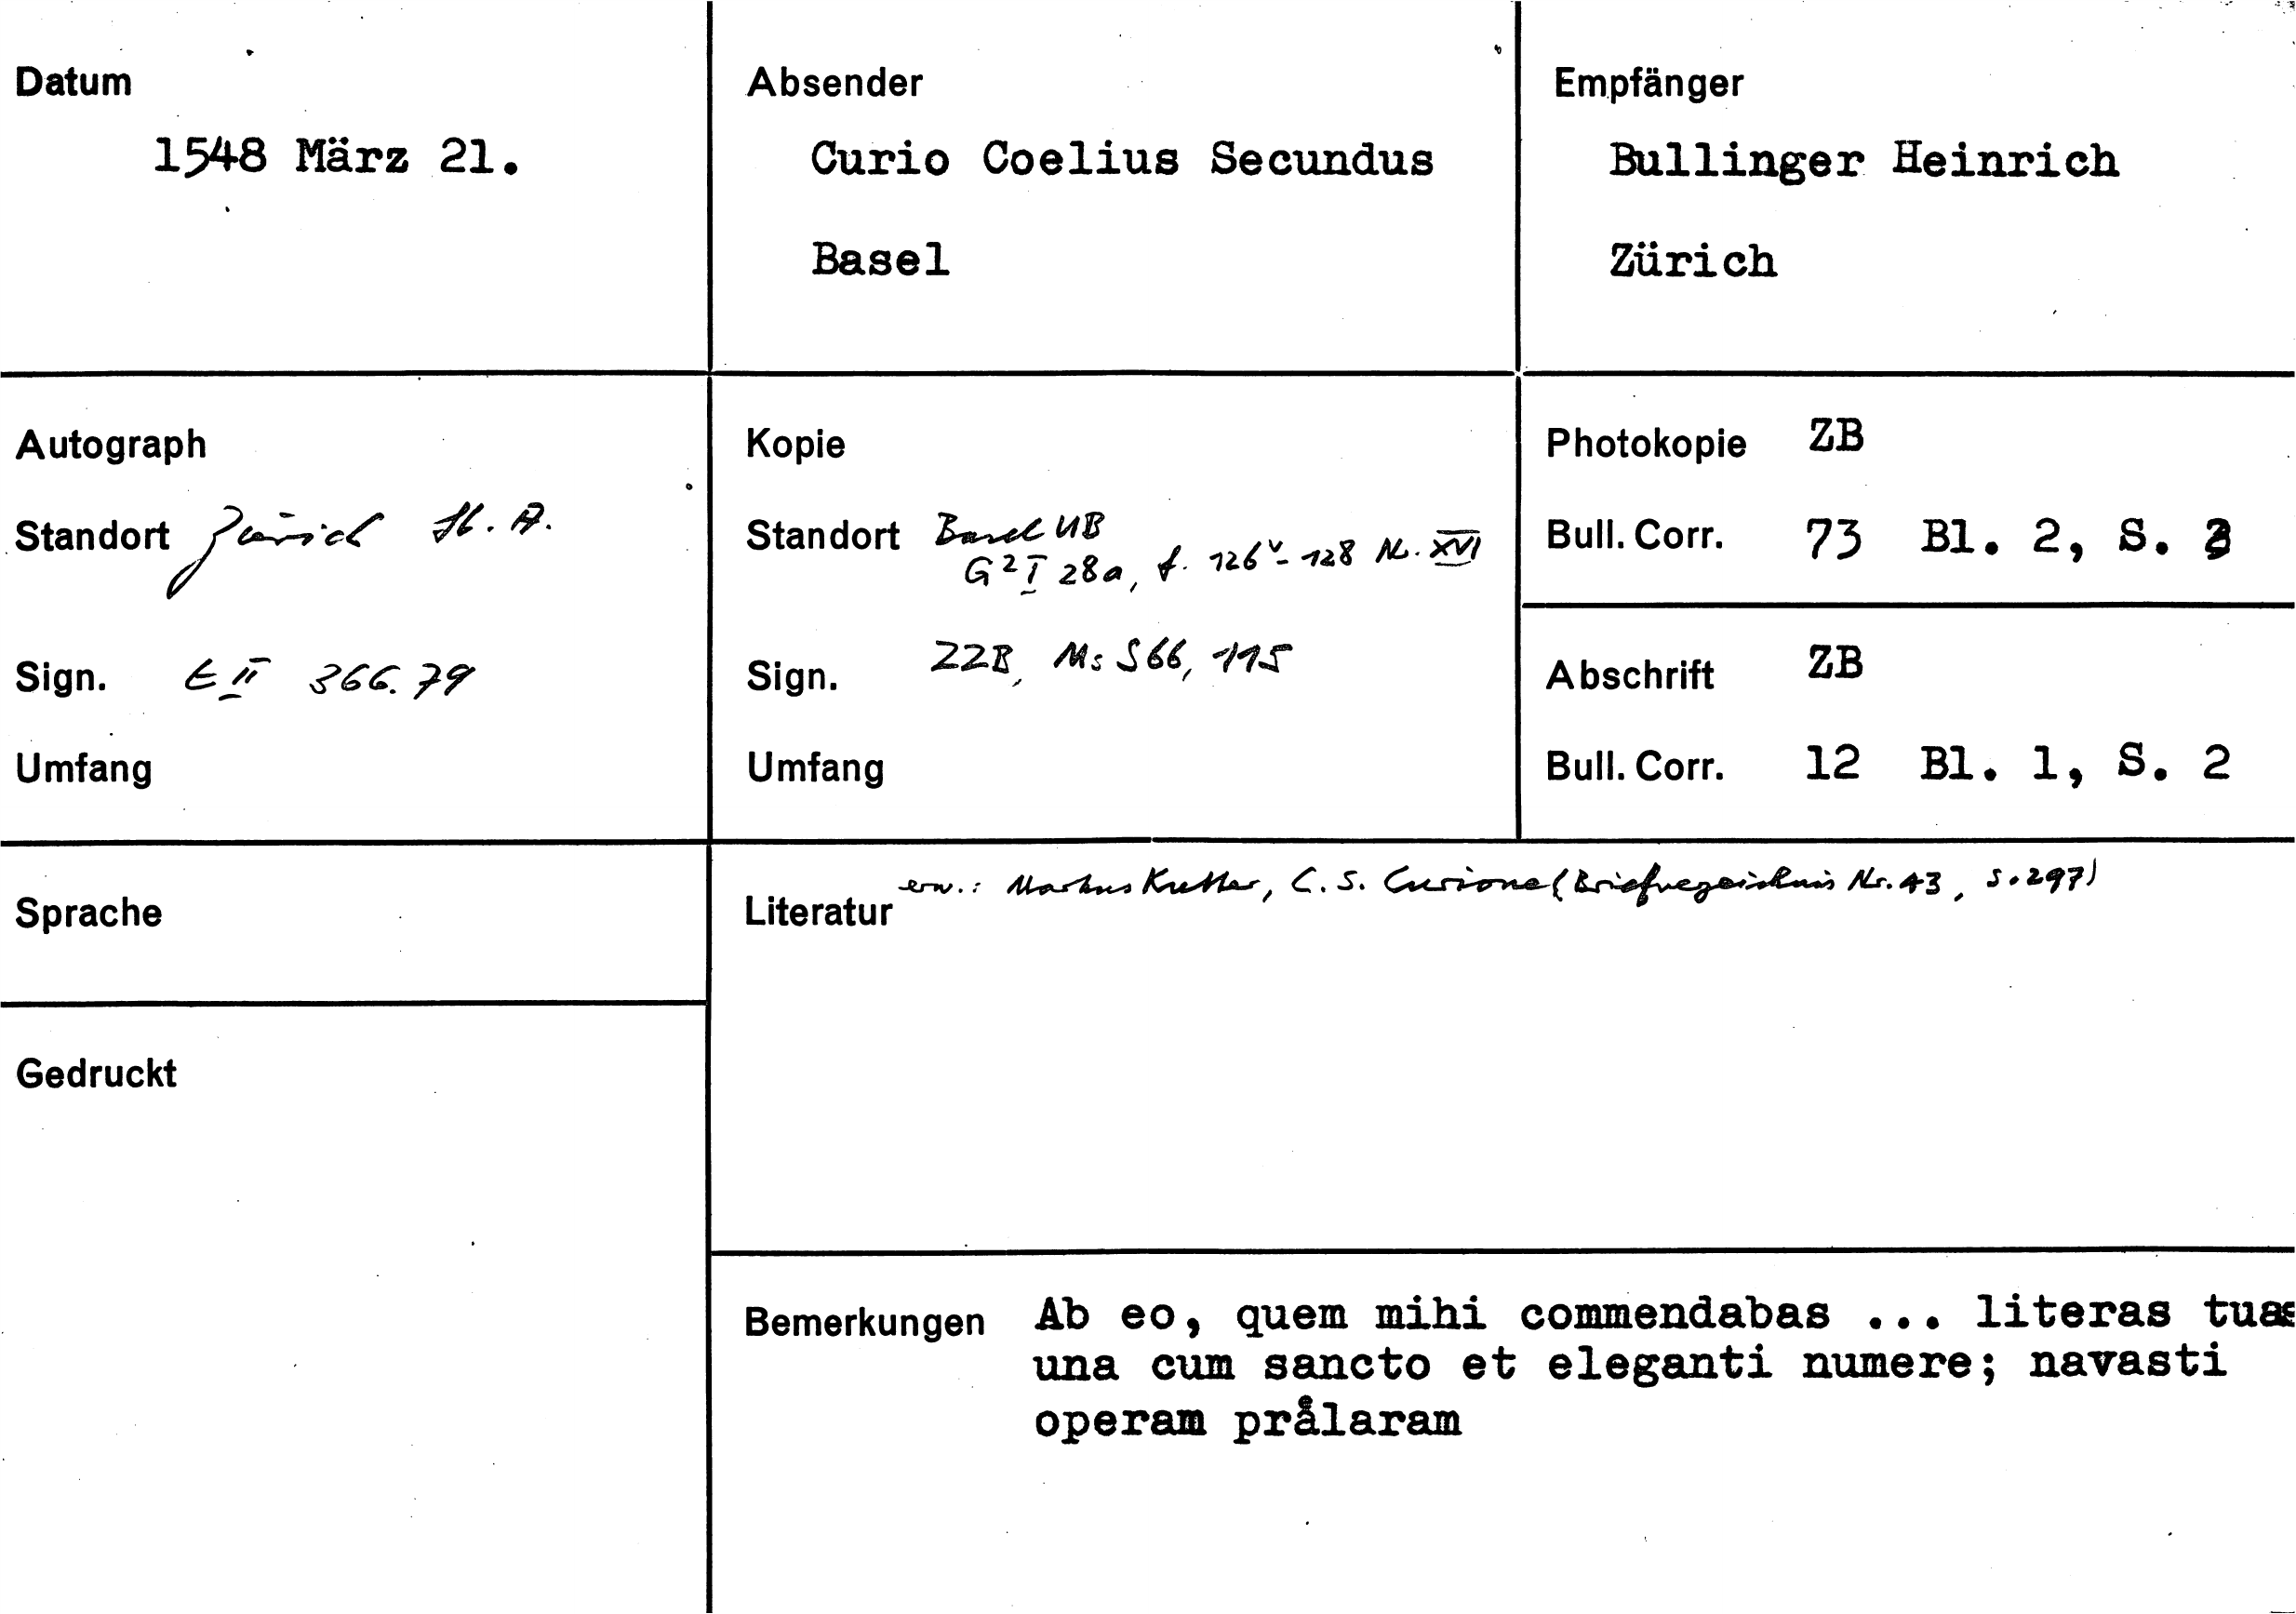 Datum
1548 März 21.
Absender
Curio Coelius Secundus
Basel
Empfänger
Bullinger Heinrich
Zürich
Autograph
Standort Zürich St. A.
Sign. E II 366. 79
Umfang
Kopie
Standort Basel UB
G² I 28a, f. 126v - 128 Nr. XVI
Sign. ZZB, Ms S66, 115
Umfang
Photokopie ZB
Bull. Corr. 73 Bl. 2, S. 3
Abschrift ZB
Bull. Corr. 12 Bl. 1, S. 2
Sprache
Literatur erw.: Markus Kutter, C. S. Curione (Briefverzeichnis Nr. 43, S. 297)
Gedruckt
Bemerkungen Ab eo, quem mihi commendabas ... literas tuas
una cum sancto et eleganti numere; navasti
operam prålaram